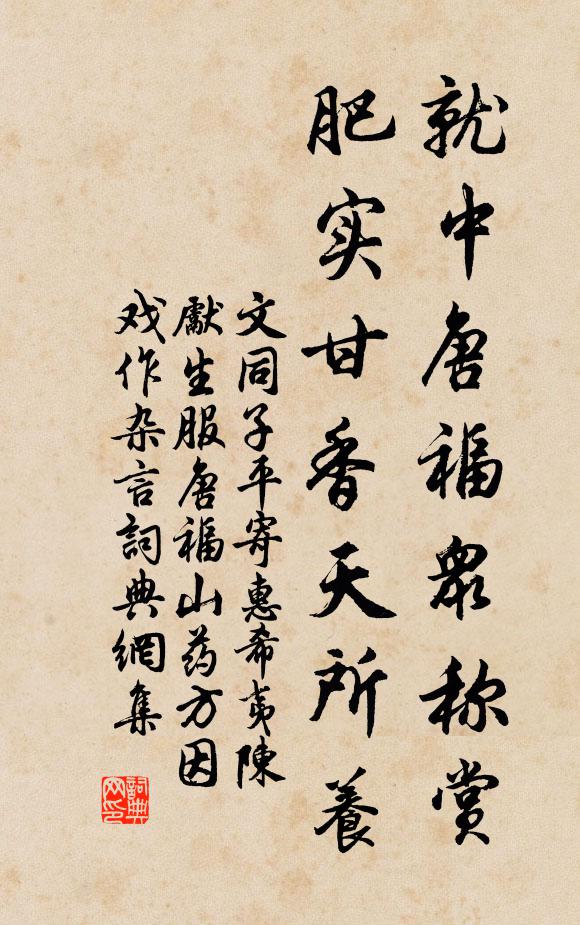 就中唐福衆称赏
肥实甘香天所養
文同子平寄惠希夷陳
獻生服唐福山药方因
戏作杂言詞典網集
詞典
网印